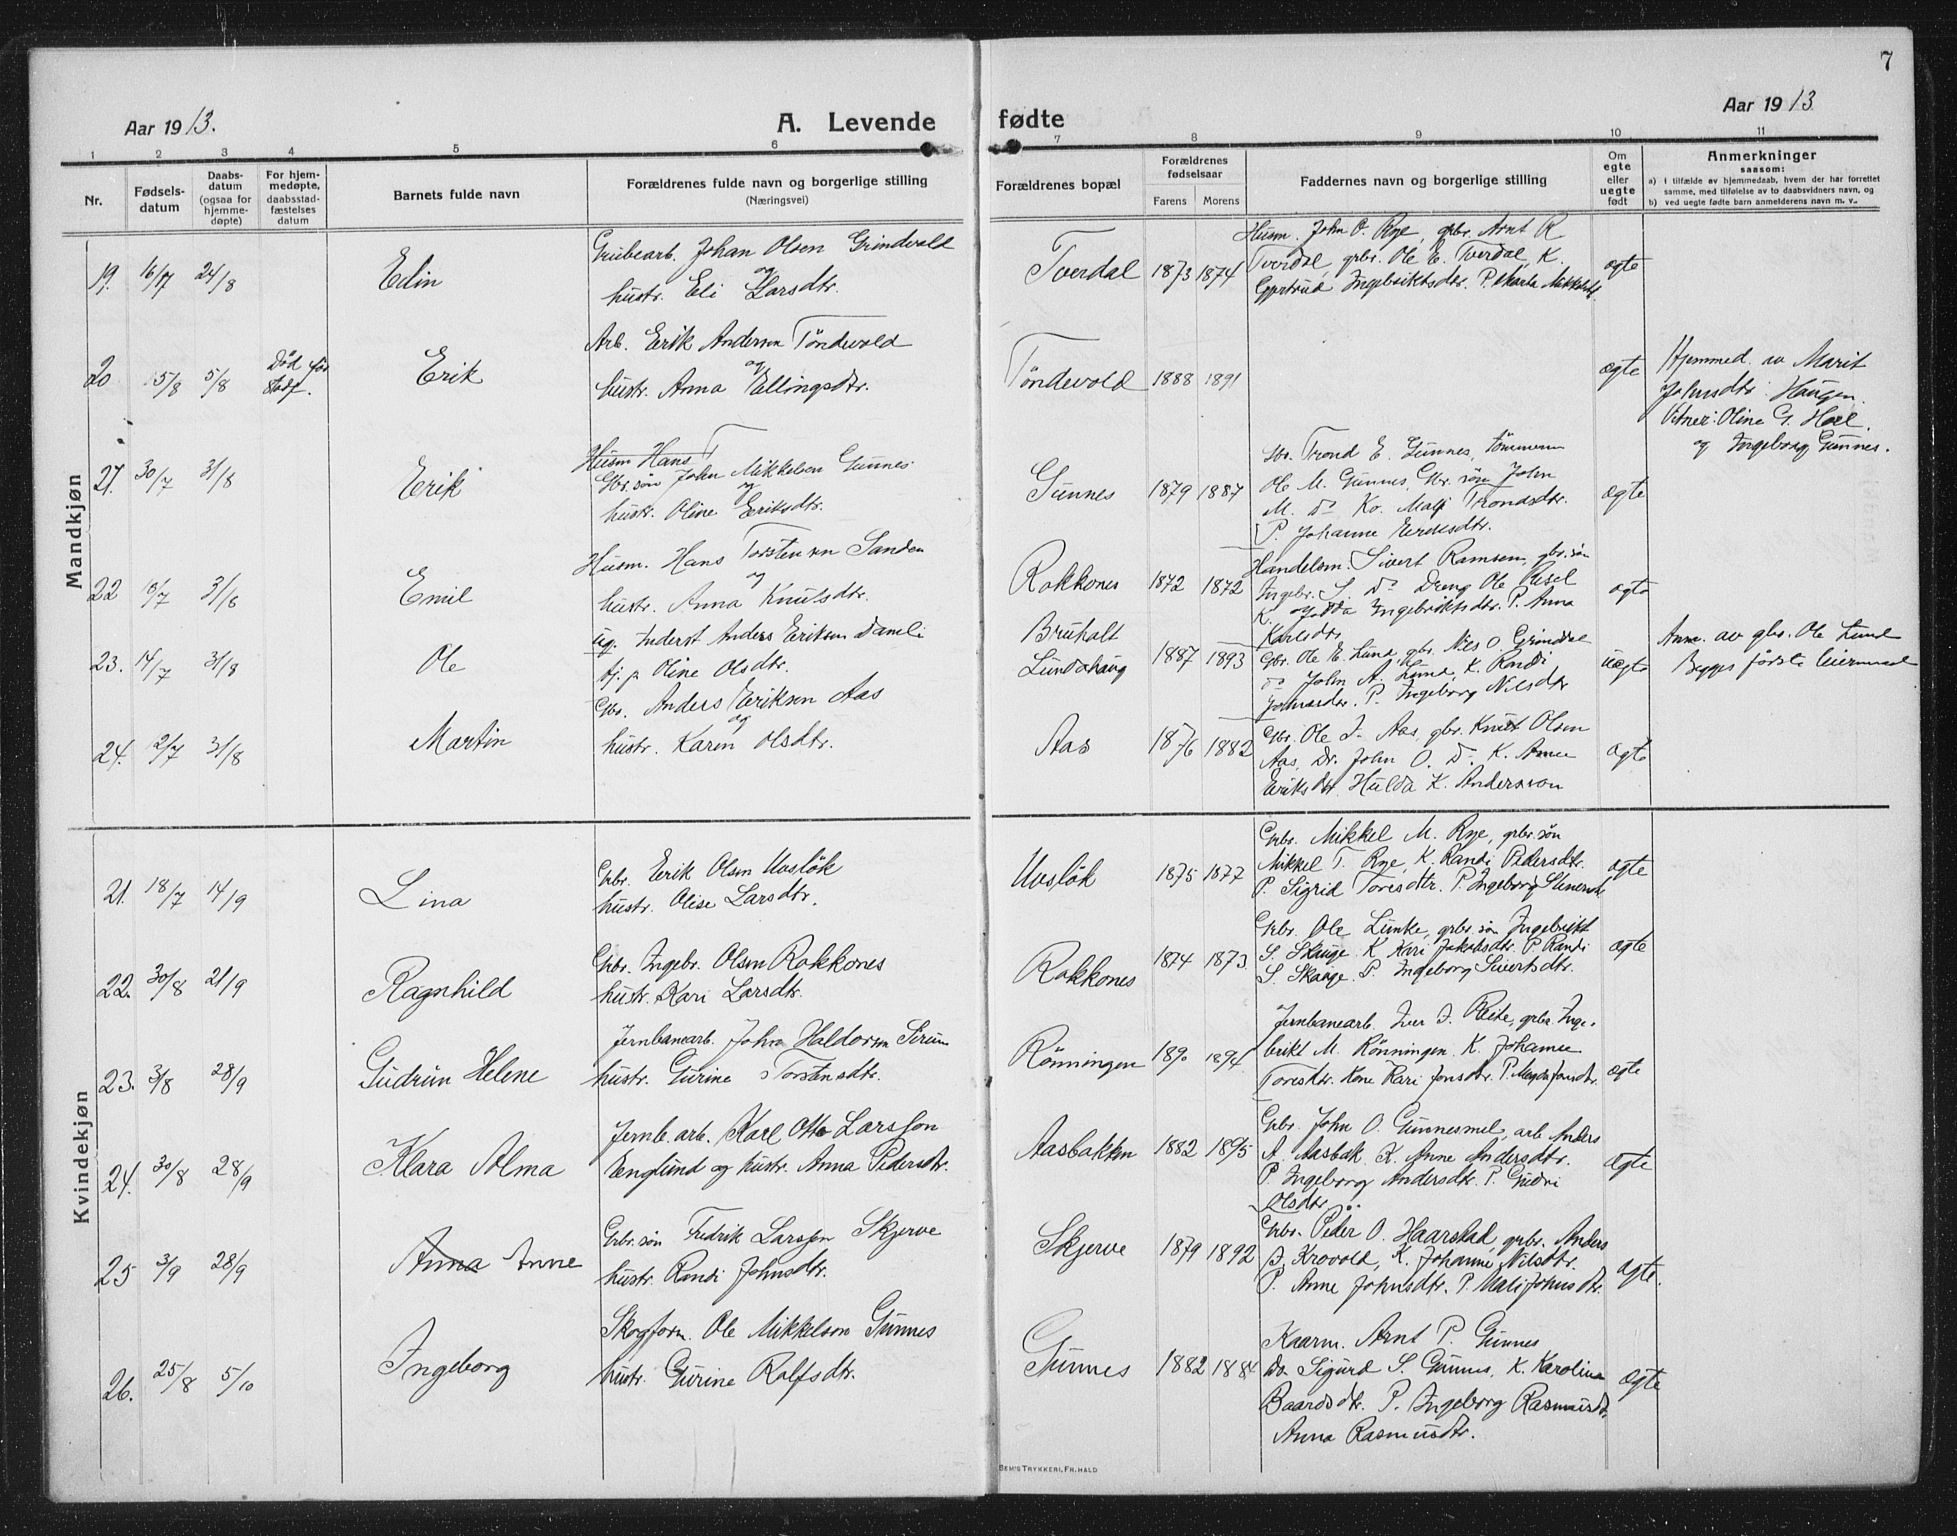 7
Aar 1913.
A. Levende
fødte
Aar 1913
1 2 3 4 5 6 7 8 9 10 11
Nr.
Fødsels-
datum
Daabs-
datum
(ogsaa for
hjemme-
døpte)
For hjem-
medøpte,
daabsstad-
fæstelses
datum
Barnets fulde navn
Forældrenes fulde navn og borgerlige stilling
(Næringsvei)
Forældrenes bopæl
Forældrenes
fødselsaar
Farens Morens
Faddernes navn og borgerlige stilling
Om
egte
eller
uegte
født
Anmerkninger
saasom:
a) i tilfælde av hjemmedaab, hvem der har forrettet
samme, med tilføielse av to daabsvidners navn, og
b) ved uegte fødte barn anmelderens navn m. v..
Mandkjøn
19. 16/7 24/8 Edin
Grubearb. Johan Olsen Grindvold
og
hustr. Eli Larsdtr.
Tverdal 1873 1874
Husm. John O. Rye, gbr. Arnt R
Tverdal, gbr. Ole E. Tverdal, K.
Gjertrud Ingebriktsdtr. P. Marta
ægte
20 5/8 5/8
Død før
stadf.
Erik
Arb. Erik Andersen Töndevold
og
hustr. Anna Ellingsdtr.
Töndevold 1888 1891
ægte
Hjemmed. av Marit
Johnsdtr. Haugen.
Vitner: Oline G. Hoel.
og Ingeborg Gunnes.
21. 30/7 31/8 Erik
Husm Hans T
Gbr. søn John Mikkelsen Gunnes
og
hustr. Oline Eriksdtr.
Gunnes 1879 1887
Gbr. Trond E. Gunnes, tömmerm
Ole M. Gunnes, Gbr. søn John
M. do Ko. Mali Trondsdtr.
P. Johanne Eriksdtr.
ægte
22 /7 31/8 Emil
Husm. Hans Torstensen Sanden
og
hustr. Anna Knutsdtr.
Rokkones 1872 1872
Handelsm. Sivert Ramsem, gbr. søn
Ingebr. S. do Dreng Ole
K. Ingebriktsdtr. P. Anna
Karlsdtr.
ægte
23. 14/7 31/8 Ole
ug. Inderst Anders Eriksen
tj. p. Oline Olsdtr.
Bruholt
Lundshaug 1887 1893
Gbr. Ole E. Lund, gbr. Nils O. Grindal
do John A. Lund, K. Randi
P. Ingeborg Nilsdtr
uægte
Anm. av gbr. Ole Lund
Begges første leiermaal
24. 2/7 31/8 Martin
Gbr. Anders Eriksen Aas
og
hustr. Karen Olsdtr.
Aas 1876 1882
Gbr. Ole J. Aas, gbr. Knut Olsen
Aas, Dr. John O. D. K. Anne
Eriksdtr Hulda K. Andersson
ægte
Kvindekjøn
21. 18/7 14/9 Lina
Gbr. Erik Olsen Uvslök
hustr. Olise Larsdtr.
Uvslök 1875 1877
Gbr. Mikkel M. Rye, gbr. søn
Mikkel T. Rye, K. Randi Pedersdtr.
P. Sigrid Toresdtr. P. Ingeborg
ægte
22. 30/8 21/9 Ragnhild
Gbr. Ingebr. Olsen Rokkones
hustr. Kari Larsdtr.
Rokkones 1874 1873
Gbr. Ole Limke, gbr. søn Ingebrikt
S. Skauge. K Kari Jakobsdtr. P. Randi
S. Skauge. P. Ingeborg Sivertsdtr.
ægte
23. 3/8 28/9 Gudrun Helene
Jernbanearb. John Haldorsen Sirum
hustr. Gurine Torstensdtr.
Rönningen 1890 1894
Jernbanearb. Iver J. Reite, gbr. Inge-
brikt M. Rönningen. K. Johanne
Toresdtr. Kone Kari Jonsdtr. P. Magda Jonsdtr.
ægte
24. 30/8 28/9 Klara Alma
Jernb. arb. Karl Otto Larsson
Englund og hustr. Anna Pedersdtr.
Aasbakken 1882 1895
Gbr. John O. Gunnesmel, arb. Anders
A. Aasbak. K. Anne Andersdtr.
P. Ingeborg Andersdtr. P. Gudri
Olsdtr.
ægte
25 3/9 28/9 Anna Anne
Gbr. søn Fredrik Larssen Skjerve
hustr. Randi Johnsdtr.
Skjerve 1879 1892
Gbr. Peder O. Haarstad, gbr. Anders
J. Krovold, K. Johanne Nilsdtr.
P. Anne Johnsdtr. P. Mali Johnsdtr.
ægte.
26. 25/8 5/10 Ingeborg
Skogform. Ole Mikkelsen Gunnes
hustr. Gurine Rolfsdtr.
Gunnes 1882 1884
Kaarm. Arnt P. Gunnes
Do. Sigurd S. Gunnes, K. Karolina
Baardsdtr. P. Ingeborg Rasmusdtr.
Anna Rasmusdtr.
ægte
SEM'S TRYKKERI, FR. HALD